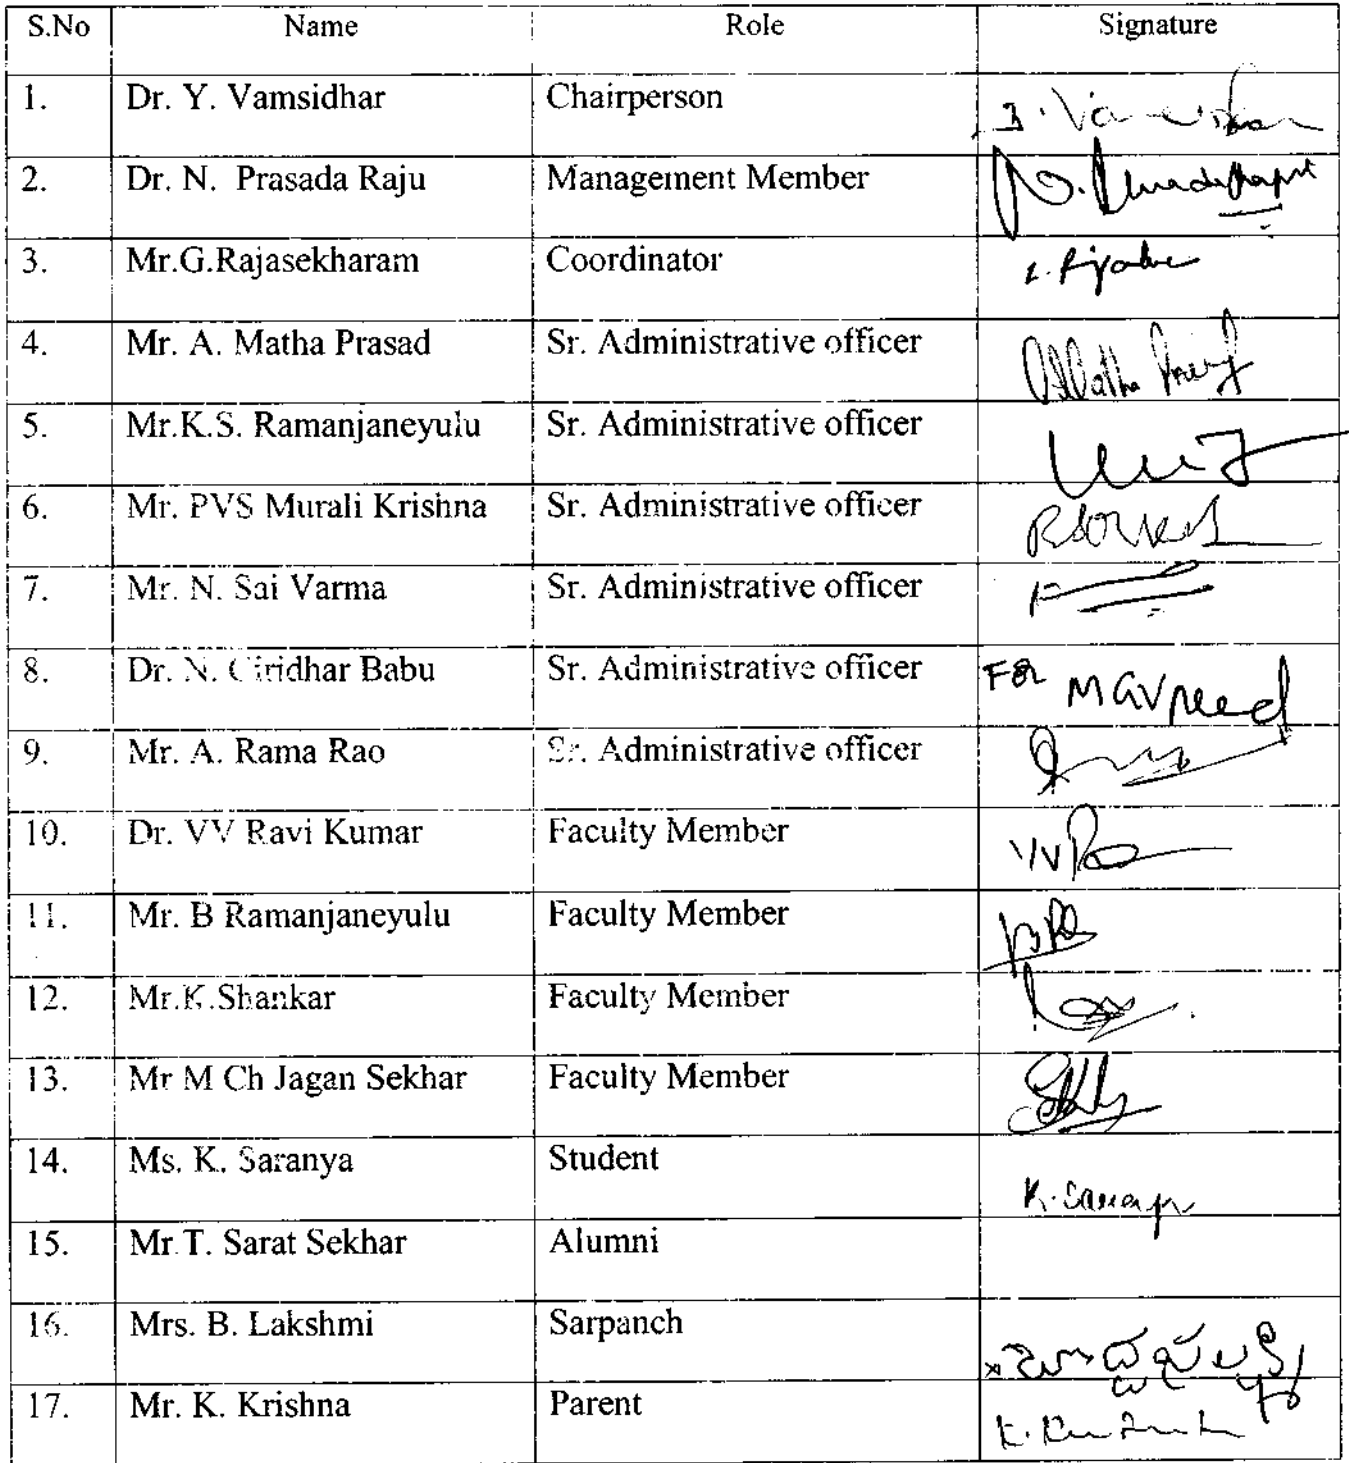 S.No Name Role Signature
1. Dr. Y. Vamsidhar Chairperson
2. Dr. N. Prasada Raju Management Member
3. Mr.G.Rajasekharam Coordinator
4. Mr. A. Matha Prasad Sr. Administrative officer
5. Mr.K.S. Ramanjaneyulu Sr. Administrative officer
6. Mr. PVS Murali Krishna Sr. Administrative officer
7. Mr. N. Sai Varma Sr. Administrative officer
8. Dr. N. Giridhar Babu Sr. Administrative officer For
9. Mr. A. Rama Rao Sr. Administrative officer
10. Dr. VV Ravi Kumar Faculty Member
11. Mr. B Ramanjaneyulu Faculty Member
12. Mr.K.Shankar Faculty Member
13. Mr M Ch Jagan Sekhar Faculty Member
14. Ms. K. Saranya Student K. Saranya
15. Mr.T. Sarat Sekhar Alumni
16. Mrs. B. Lakshmi Sarpanch
17. Mr. K. Krishna Parent